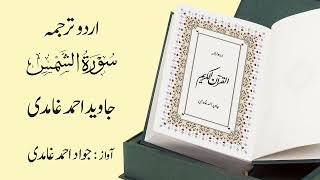 اردو ترجمہ
سُوْرَۃُ الشَّمْسِ
جاوید احمد غامدی
آواز: جواد احمد غامدی
القرآن الکریم
جاوید احمد غامدی